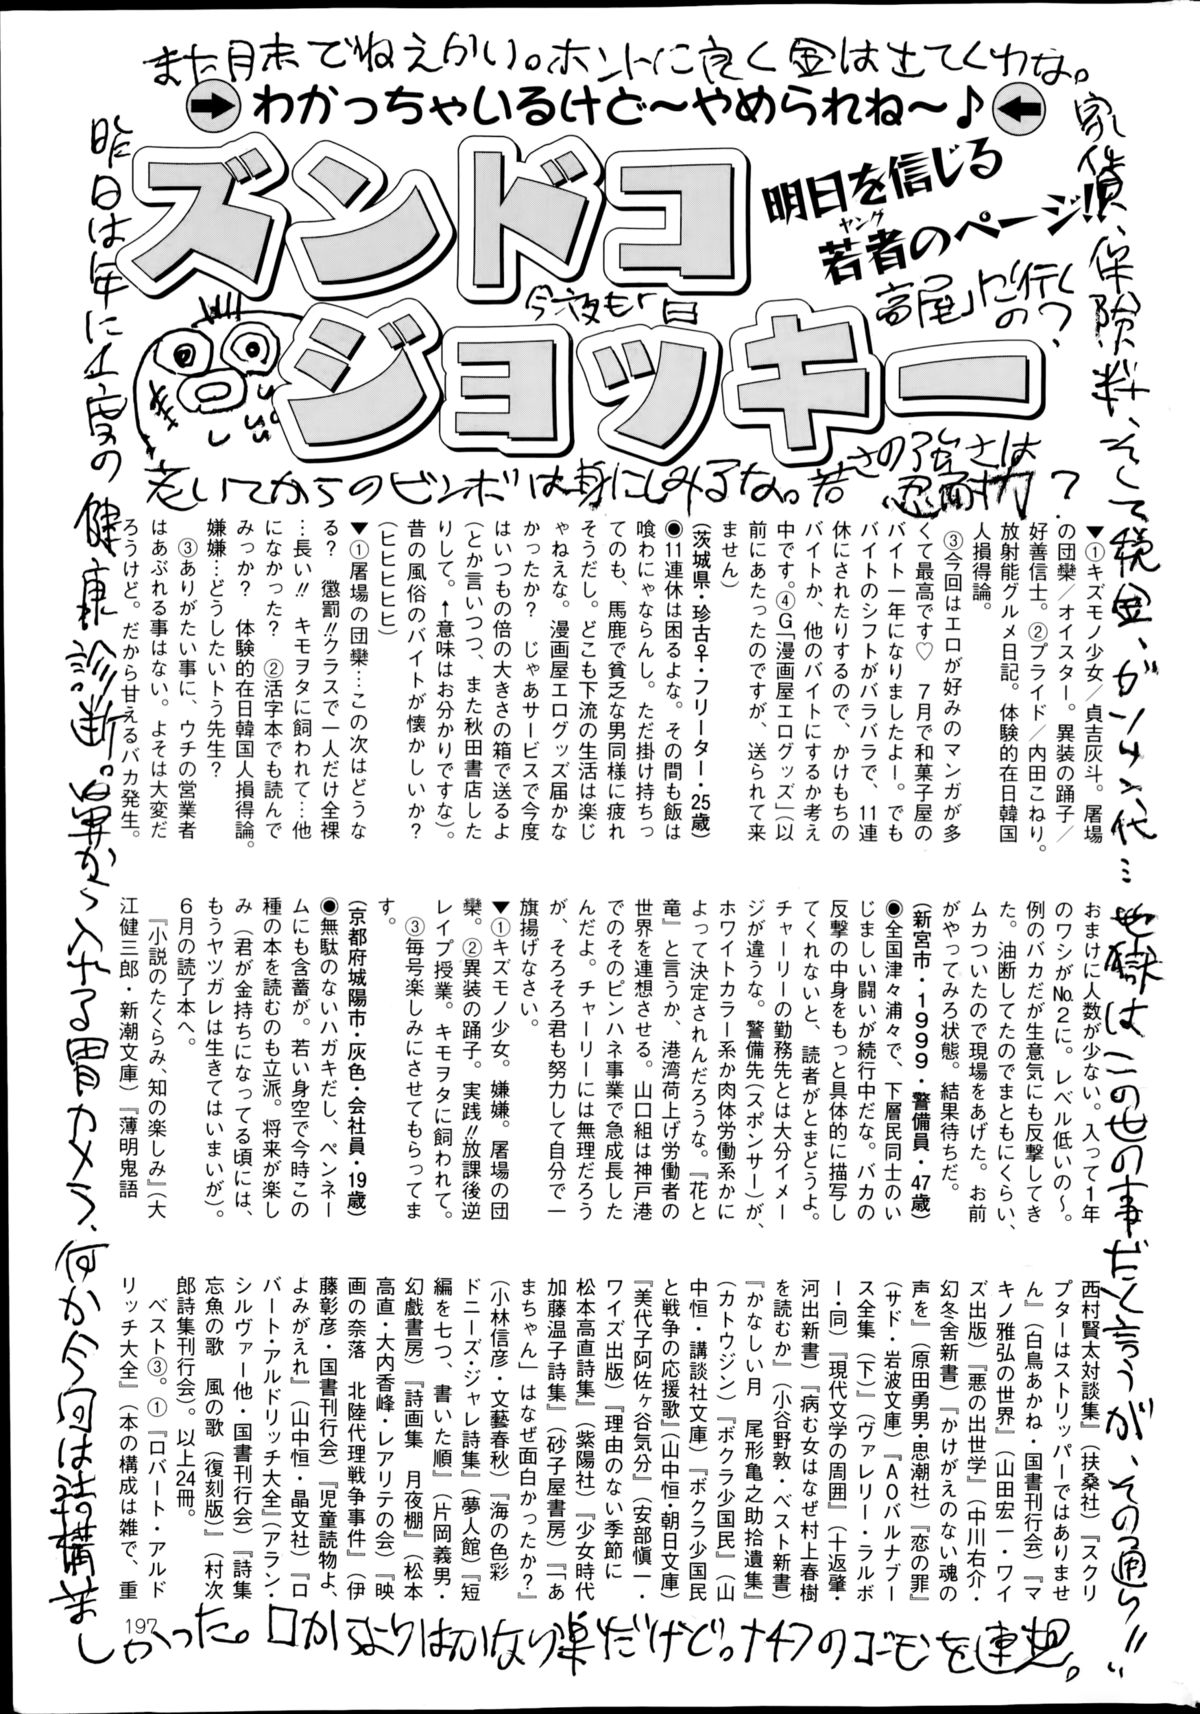 また月末でねえかい。ホントに良く金は出てくわな。
わかっちゃいるけど〜やめられね〜♪
ズンドコ
ジョッキー
明日を信じる
若者のページ!!
ヤング
高尾山に行くの?
今夜も1日
家賃、保険料、そして税金、ガソリン代…地獄はこの世の事だと言うが、その通り!!
昨日は年に1度の健康診断。鼻から入れる胃カメラ、何か今回は結構苦しかった。口からよりはかなり楽だけど。ナチスのゴーモンを連想。
老いてからのビンボは身にしみるな。若さの強さは忍耐力?
▼①キズモノ少女/貞吉灰斗。屠場
の団欒/オイスター。異装の踊子/
好善信士。②プライド/内田こねり。
放射能グルメ日記。体験的在日韓国
人損得論。
③今回はエロが好みのマンガが多
くて最高です♡ 7月で和菓子屋の
バイト一年になりましたよー。でも
バイトのシフトがバラバラで、11連
休にされたりするので、かけもちの
バイトか、他のバイトにするか考え
中です。④G「漫画屋エログッズ」(以
前にあたったのですが、送られて来
ません)
(茨城県・珍古♀・フリーター・25歳)
●11連休は困るよな。その間も飯は
喰わにゃならんし。ただ掛け持ちっ
てのも、馬鹿で貧乏な男同様に疲れ
そうだし。どこも下流の生活は楽じ
ゃねえな。漫画屋エログッズ届かな
かったか? じゃあサービスで今度
はいつもの倍の大きさの箱で送るよ
(とか言いつつ、また秋田書店した
りして。↑意味はお分かりですな)。
昔の風俗のバイトが懐かしいか?
(ヒヒヒヒヒ)
▼①屠場の団欒…この次はどうな
る? 懲罰!!クラスで一人だけ全裸
…長い!! キモヲタに飼われて…他
になかった? ②活字本でも読んで
みっか? 体験的在日韓国人損得論。
嫌嫌…どうしたいトう先生?
③ありがたい事に、ウチの営業者
はあぶれる事はない。よそは大変だ
ろうけど。だから甘えるバカ発生。
おまけに人数が少ない。入って1年
のワシがNo.2に。レベル低いの〜。
例のバカだが生意気にも反撃してき
た。油断してたのでまともにくらい、
ムカついたので現場をあげた。お前
がやってみろ状態。結果待ちだ。
(新宮市・1999・警備員・47歳)
●全国津々浦々で、下層民同士のい
じましい闘いが続行中だな。バカの
反撃の中身をもっと具体的に描写し
てくれないと、読者がとまどうよ。
チャーリーの勤務先とは大分イメー
ジが違うな。警備先(スポンサー)が、
ホワイトカラー系か肉体労働系かに
よって決定されんだろうな。『花と
竜』と言うか、港湾荷上げ労働者の
世界を連想させる。山口組は神戸港
でのそのピンハネ事業で急成長した
んだよ。チャーリーには無理だろう
が、そろそろ君も努力して自分で一
旗揚げなさい。
▼①キズモノ少女。嫌嫌。屠場の団
欒。②異装の踊子。実践!!放課後逆
レイプ授業。キモヲタに飼われて。
③毎号楽しみにさせてもらってま
す。
(京都府城陽市・灰色・会社員・19歳)
●無駄のないハガキだし、ペンネー
ムにも含蓄が。若い身空で今時この
種の本を読むのも立派。将来が楽し
み(君が金持ちになってる頃には、
もうヤツガレは生きてはいまいが)。
6月の読了本へ。
『小説のたくらみ、知の楽しみ』(大
江健三郎・新潮文庫)『薄明鬼語
西村賢太対談集』(扶桑社)『スクリ
プターはストリッパーではありませ
ん』(白鳥あかね・国書刊行会)『マ
キノ雅弘の世界』(山田宏一・ワイ
ズ出版)『悪の出世学』(中川右介・
幻冬舎新書)『かけがえのない魂の
声を』(原田勇男・思潮社)『恋の罪』
(サド・岩波文庫)『AOバルナブー
ス全集(下)』(ヴァレリー・ラルボ
ー・同)『現代文学の周囲』(十返肇・
河出新書)『病む女はなぜ村上春樹
を読むか』(小谷野敦・ベスト新書)
『かなしい月 尾形亀之助拾遺集』
(カトウジン)『ボクラ少国民』(山
中恒・講談社文庫)『ボクラ少国民
と戦争の応援歌』(山中恒・朝日文庫)
『美代子阿佐ヶ谷気分』(安部愼一・
ワイズ出版)『理由のない季節に
松本高直詩集』(紫陽社)『少女時代
加藤温子詩集』(砂子屋書房)『「あ
まちゃん」はなぜ面白かったか?』
(小林信彦・文藝春秋)『海の色彩
ドニーズ・ジャレ詩集』(夢人館)『短
編を七つ、書いた順』(片岡義男・
幻戯書房)『詩画集 月夜棚』(松本
高直・大内香峰・レアリテの会)『映
画の奈落 北陸代理戦争事件』(伊
藤彰彦・国書刊行会)『児童読物よ、
よみがえれ』(山中恒・晶文社)『ロ
バート・アルドリッチ大全』(アラン・
シルヴァー他・国書刊行会)『詩集
忘魚の歌 風の歌(復刻版)』(村次
郎詩集刊行会)。以上24冊。
ベスト③。①『ロバート・アルド
リッチ大全』(本の構成は雑で、重
197